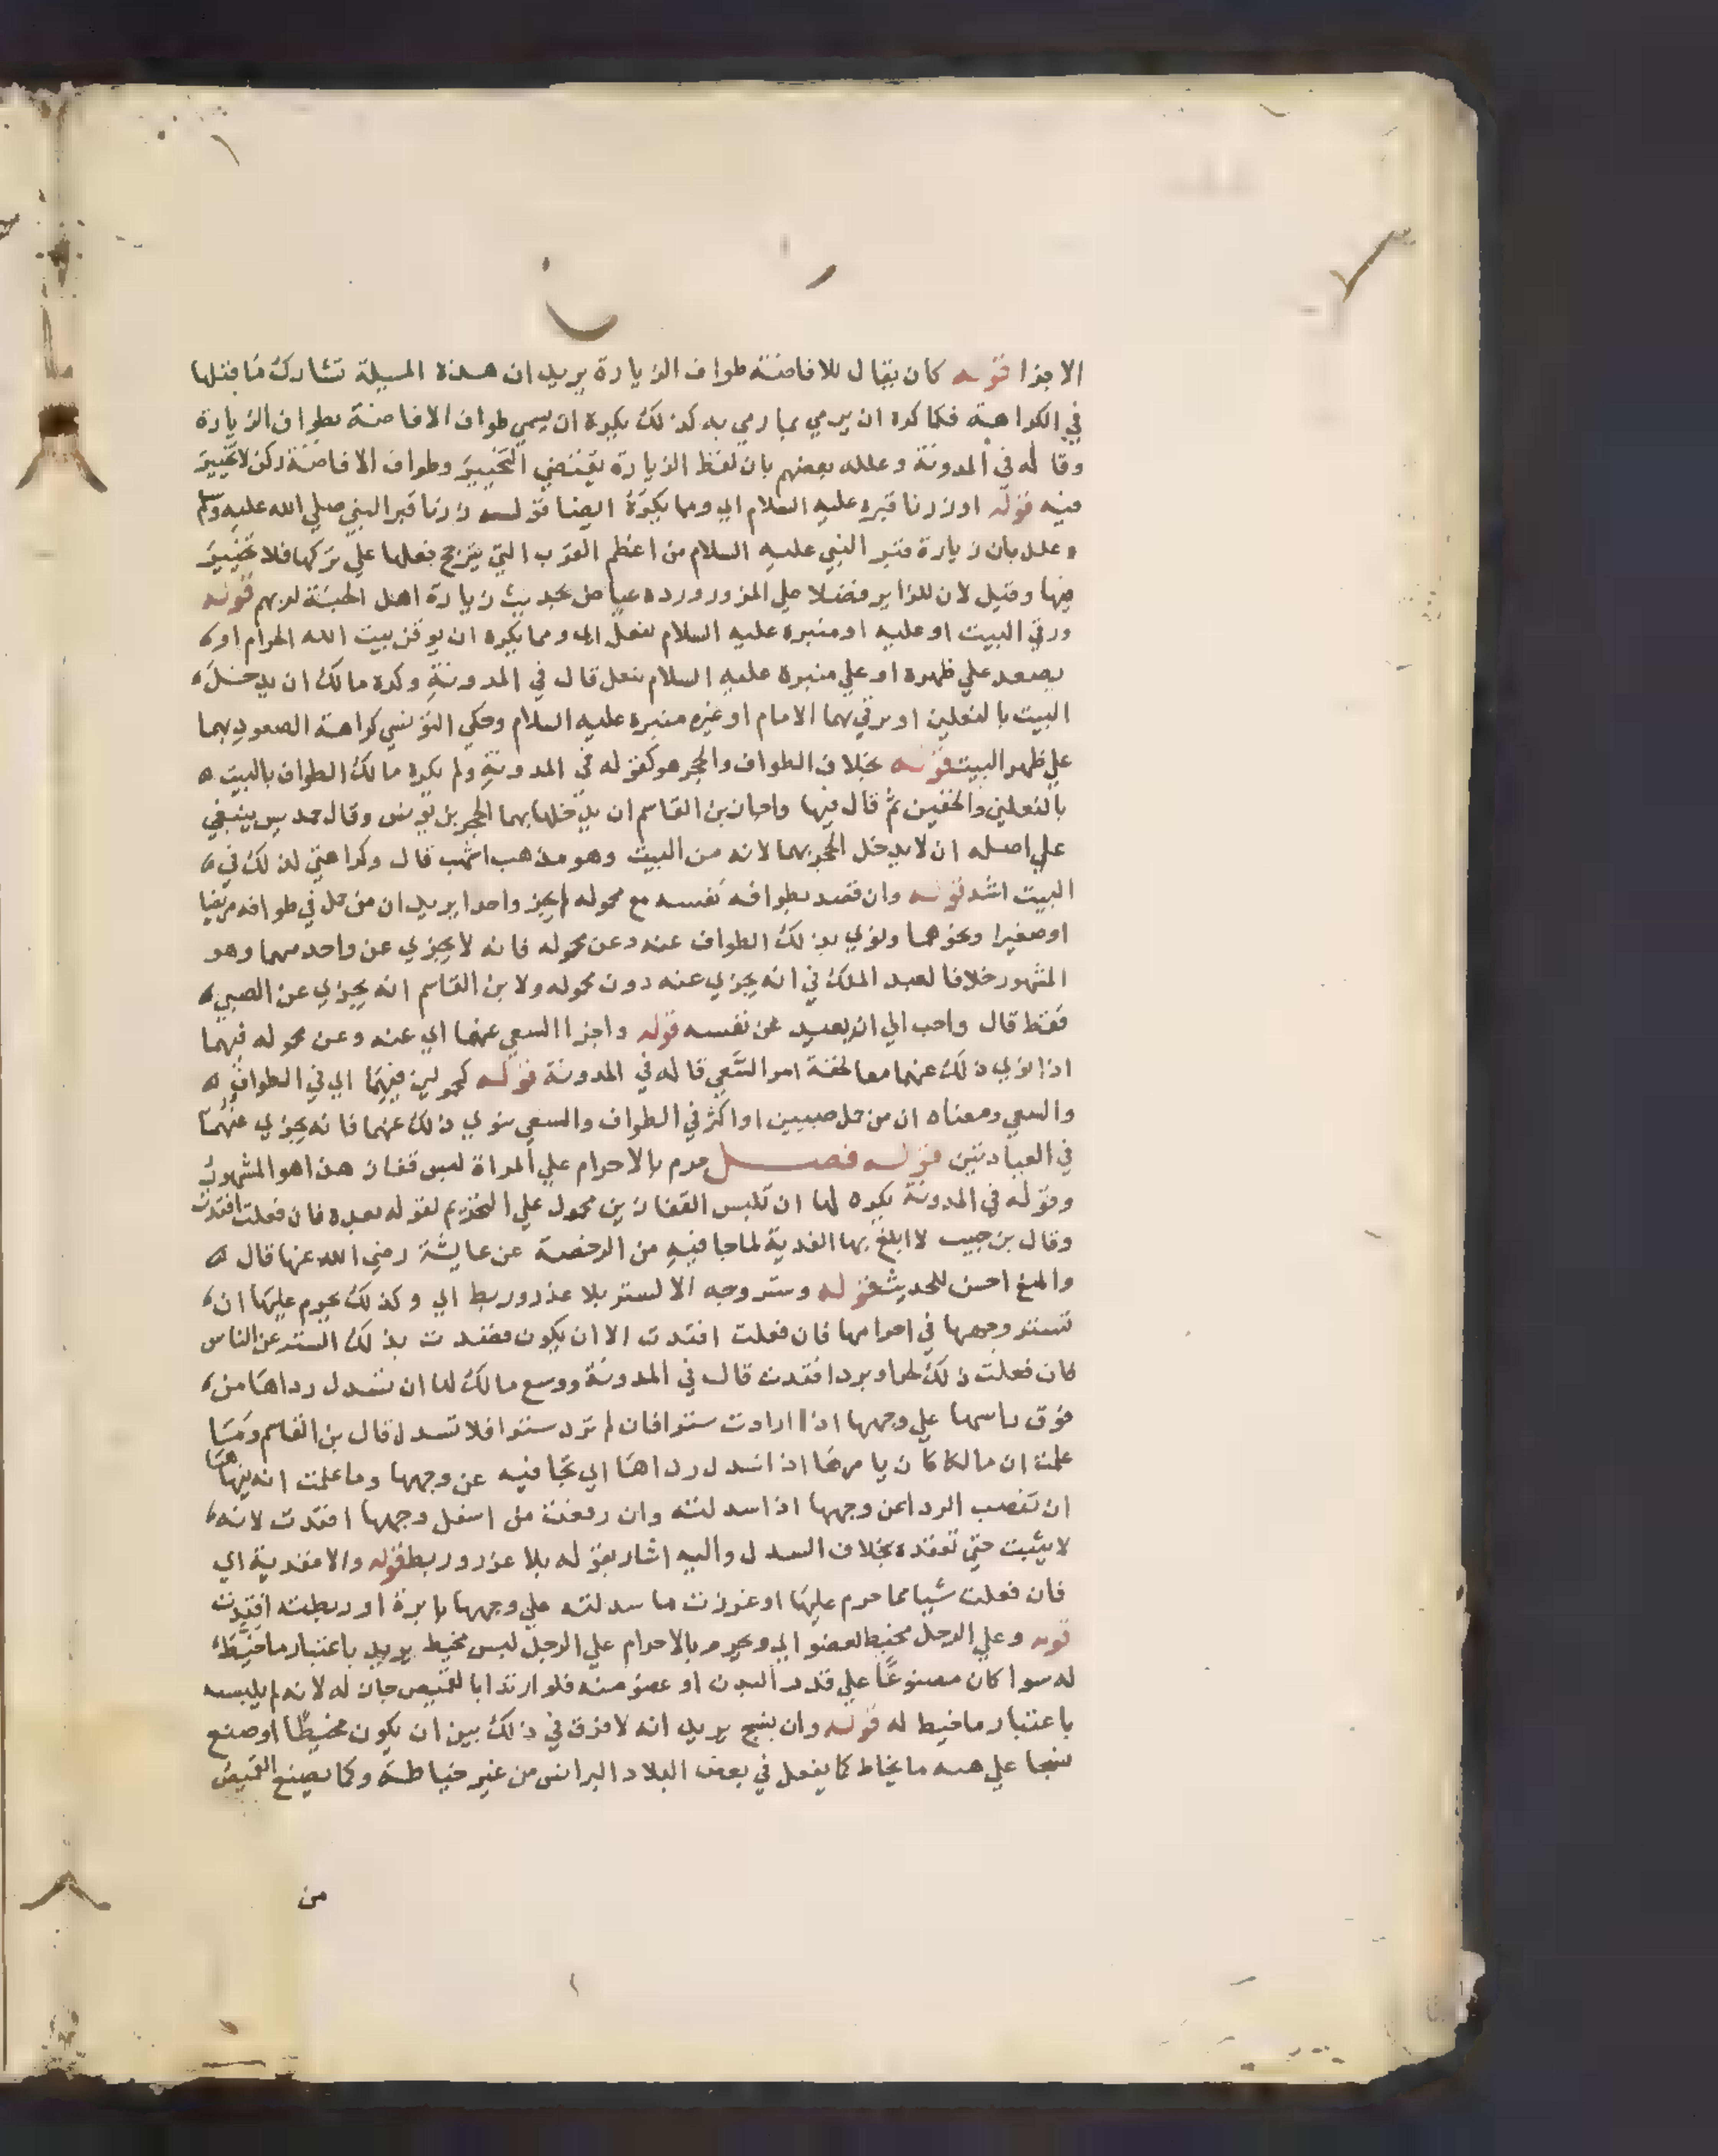 الاجزا قوله كان يقال للافاضة طواف الزيارة يريد ان هذه المسيلة تشارك ما قبلها
في الكراهة فكما كره ان يرمي بما رمي به كذلك يكره ان يسمي طواف الافاضة بطواف الزيارة
وقاله في المدونة وعلله بعضهم بان لفظ الزيارة يقتضي التخيير وطواف الافاضة ركن لا تخيير
فيه قوله او زرنا قبره عليه السلام اي ومما يكره ايضا قوله زرنا قبر النبي صلي الله عليه وسلم
وعلل بان زيارة قبر النبي عليه السلام من اعظم القرب التي يترجح فعلها علي تركها فلا تخيير
فيها وقيل لان للزاير فضلا علي المزور ورده عياض بحديث زيارة اهل الجنة لربهم قوله
ورقي البيت او عليه او منبره عليه السلام بنعل اي ومما يكره ان يرقي بيت الله الحرام او
يصعد علي ظهره او علي منبره عليه السلام بنعل قال في المدونة وكره مالك ان يدخل
البيت بالنعلين او يرقي بهما الامام او غيره منبره عليه السلام وحكي التونسي كراهة الصعود بهما
علي ظهر البيت قوله بخلاف الطواف والحجر هو كقوله في المدونة ولم يكره مالك الطواف بالبيت
بالنعلين والخفين ثم قال فيها واجاز بن القاسم ان يدخلها بهما الحجر بن يونس وقال حمديس ينبغي
علي اصله ان لا يدخل الحجر بهما لانه من البيت وهو مذهب اشهب قال وكراهتي لذلك في
البيت اشد قوله وان قصد بطوافه نفسه مع محموله لم يجز واحدا يريد ان من حمل في طوافه مريضا
او صغيرا ونحوهما ونوي بذلك الطواف عنه وعن محموله فانه لا يجزي عن واحد منهما وهو
المشهور خلافا لعبد الملك في انه يجزي عنه دون محموله ولابن القاسم انه يجزي عن الصبي
فقط قال واحب الي ان يعيد عن نفسه قوله واجزا السعي عنهما اي عنه وعن محموله فيهما
اذا نوي ذلك عنهما معا لخفة امر السعي قاله في المدونة قوله كمحمولين فيهما اي في الطواف
والسعي ومعناه ان من حمل صبيين او اكثر في الطواف والسعي ينوي ذلك عنهما فانه يجزي عنهما
في العبادتين قوله فصل حرم بالاحرام علي المراة لبس قفاز هذا هو المشهور
وقوله في المدونة يكره لها ان تلبس القفازين محمول علي التحريم لقوله بعده فان فعلت افتدت
وقال بن حبيب لا ابلغ بها الفدية لما جا فيه من الرخصة عن عايشة رضي الله عنها قال
والمنع احسن للحديث قوله وستر وجه الا لستر بلا غرز وربط اي وكذلك يحرم عليها ان
تستر وجهها في احرامها فان فعلت افتدت الا ان يكون قصدت بذلك الستر عن الناس
فان فعلت ذلك لحر او برد افتدت قال في المدونة ووسع مالك لها ان تسدل رداها من
فوق راسها علي وجهها اذا ارادت سترا فان لم ترد سترا فلا تسدل قال بن القاسم وما
علمت ان مالكا كان يامرها اذا اسدل رداها ان تجافيه عن وجهها وما علمت انه ينهاها
ان تغصب الردا عن وجهها اذا اسدلته وان رفعته من اسفل وجهها افتدت لانه
لا يثبت حتي تعقده بخلاف السدل واليه اشار بقوله بلا غرز وربط قوله والا ففدية اي
فان فعلت شيا مما حرم عليها او غرزت ما سدلته علي وجهها بابرة او ربطته افتدت
قوله وعلي الرجل محيط بعضو اي ويحرم بالاحرام علي الرجل لبس مخيط يريد باعتبار ما خيط
له سوا كان مصنوعا علي قدر البدن او عضو منه فلو ارتدا بالقميص جاز له لانه لم يلبسه
باعتبار ما خيط له قوله وان بنسج يريد انه لا فرق في ذلك بين ان يكون مخيطا او صنع
نسجا علي هيه ما يخاط كما يفعل في بعض البلاد البرانس من غير خياطة وكما يصنع القميص
من